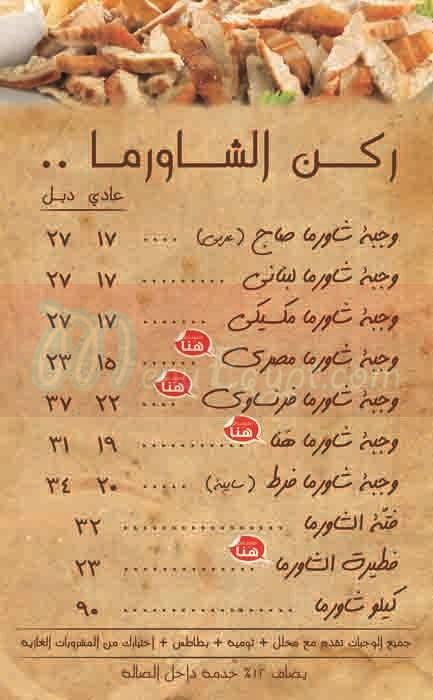 ركن الشاورما ..
عادي دبل
وجبة شاورما صاج (عربى) .... ١٧ ٢٧
وجبة شاورما لبنانى ......... ١٧ ٢٧
وجبة شاورما مكسيكى ....... ١٧ ٢٧
وجبة شاورما مصرى هنا ...... ١٥ ٢٣
وجبة شاورما فرنساوى هنا .... ٢٢ ٣٧
وجبة شاورما هنا هنا ............ ١٩ ٣١
وجبة شاورما فرط (سايبة) ..... ٢٠ ٣٤
فتة الشاورما .................. ٣٢
فطيرة الشاورما هنا ............... ٢٣
كيلو شاورما ................... ٩٠
جميع الوجبات تقدم مع مخلل + توميه + بطاطس + إختيارك من المشروبات الغازيه
يضاف ١٢% خدمه داخل الصاله